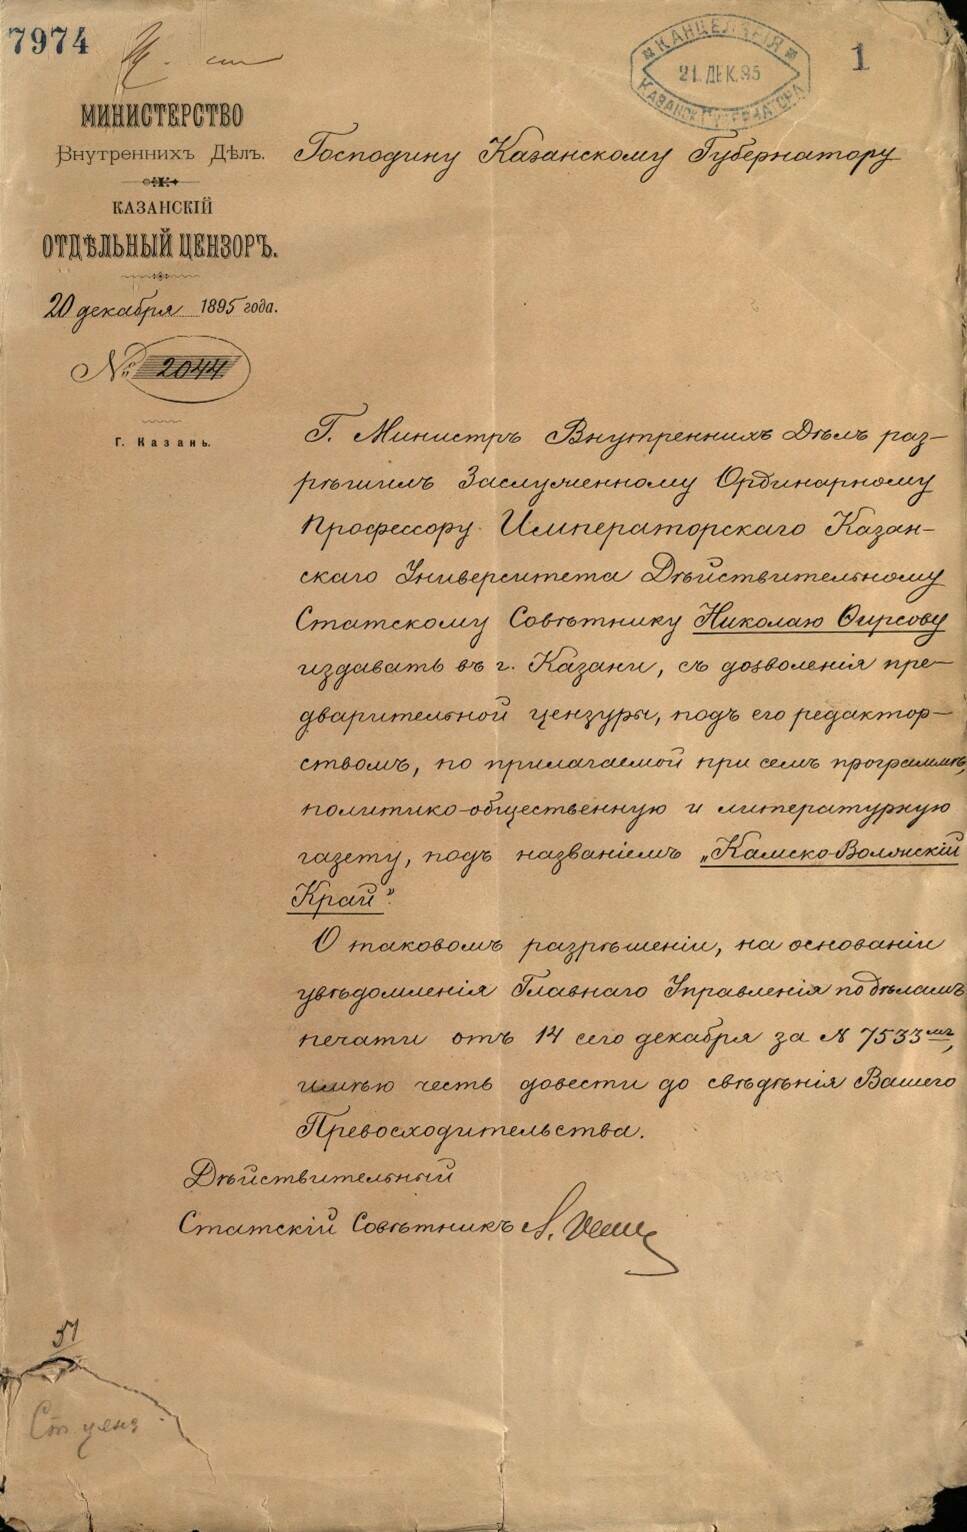 7974
КАНЦЕЛЯРІЯ
21 ДЕК. 95
КАЗАНСК. ГУБЕРНАТОРА
1
МИНИСТЕРСТВО
Внутреннихъ Дѣлъ.
КАЗАНСКІЙ
ОТДѢЛЬНЫЙ ЦЕНЗОРЪ.
20 декабря 1895 года.
№ 2044
Г. Казань.
Господину Казанскому Губернатору
Г. Министръ Внутреннихъ Дѣлъ раз-
рѣшилъ Заслуженному Ординарному
Профессору Императорскаго Казан-
скаго Университета Дѣйствительному
Статскому Совѣтнику Николаю Ѳирсову
издавать въ г. Казани, съ дозволенія пре-
дварительной цензуры, подъ его редактор-
ствомъ, по прилагаемой при семъ программѣ,
политико-общественную и литературную
газету, подъ названіемъ „Камско-Волжскій
Край".
О таковомъ разрѣшеніи, на основаніи
увѣдомленія Главнаго Управленія по дѣламъ
печати отъ 14 сего декабря за № 7533мъ,
имѣю честь довести до свѣдѣнія Вашего
Превосходительства.
Дѣйствительный
Статскій Совѣтникъ
51